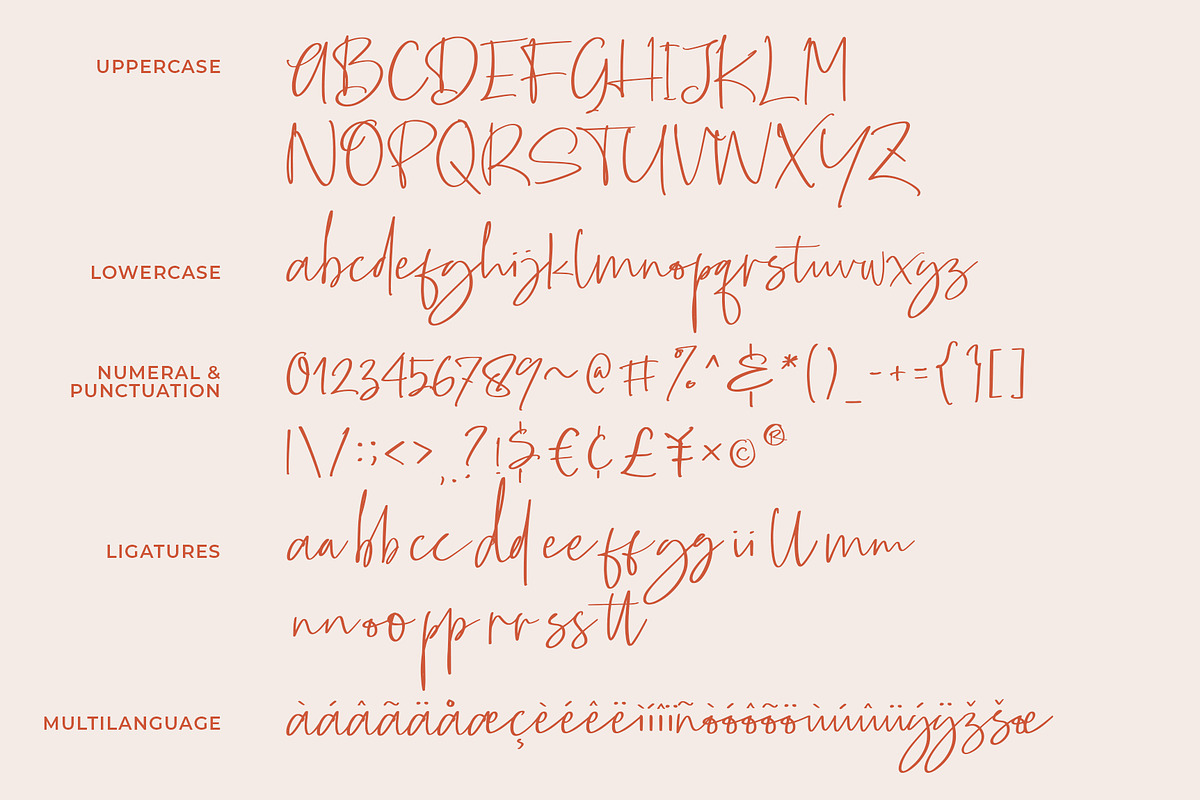 UPPERCASE
ABCDEFGHIJKLM
NOPQRSTUVWXYZ
LOWERCASE
abcdefghijklmnopqrstuvwxyz
NUMERAL &
PUNCTUATION
0123456789~@#%^&*()_-+={}[]
|\/:;<>,.?!$€¢£¥×©®
LIGATURES
aa bb cc dd ee ff gg ii ll mm
nn oo pp rr ss tt
MULTILANGUAGE
àáâãäåæçèéêëìíîïñòóôõöùúûüýÿžšœ